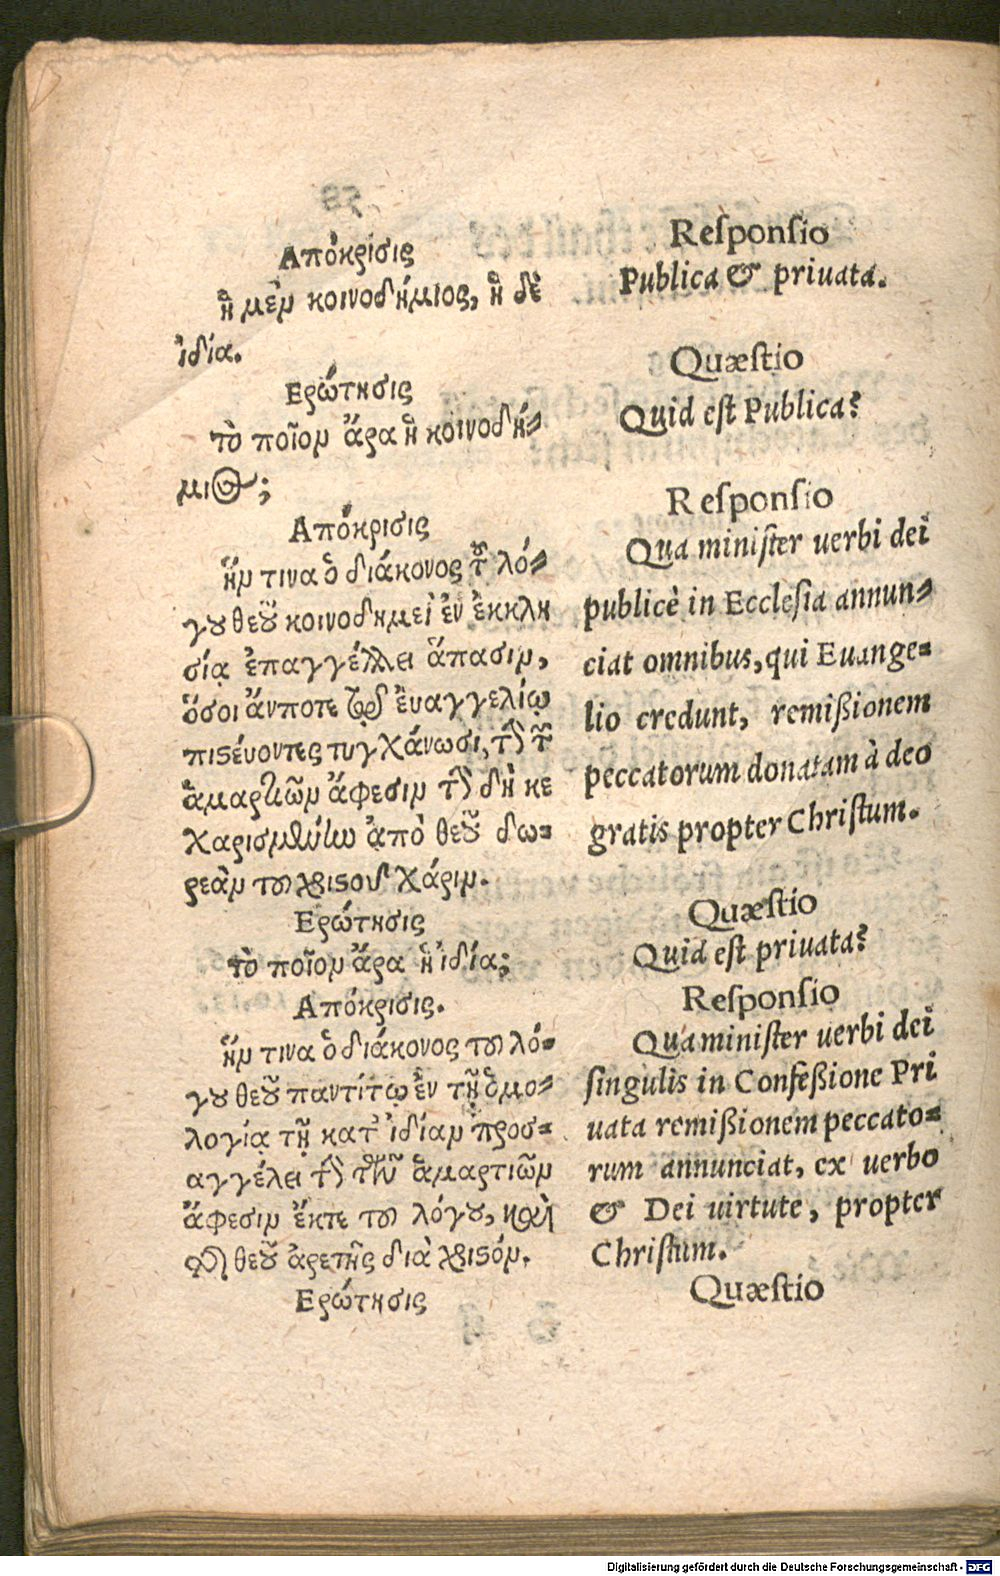 Απόκρισις
ἣ μὲν κοινοδήμιος, ἣ δὲ
ἰδία.
Ερώτησις
τὸ ποῖον ἄρα ἡ κοινοδή-
μιος;
Απόκρισις
ἥν τινα ὁ διάκονος τοῦ λό-
γου θεοῦ κοινοδημεὶ ἐν ἐκκλη
σίᾳ ἐπαγγέλλει ἅπασιν,
ὅσοι ἄνποτε τῷ ἐυαγγελίῳ
πιςέυοντες τυγχάνωσι, τὴν τῶν
ἁμαρτιῶν ἄφεσιν τὴν δὴ κε
χαρισμένην ἀπὸ θεοῦ δω-
ρεὰν τοῦ χριςοῦ χάριν.
Ερώτησις
τὸ ποῖον ἄρα ἡ ἰδία;
Απόκρισις.
ἥν τινα ὁ διάκονος τοῦ λό-
γου θεοῦ παντίτῳ ἐν τῇ ὁμο-
λογίᾳ τῇ κατ' ἰδίαν προσ-
αγγέλει τὴν τῶν ἁμαρτιῶν
ἄφεσιν ἔκτε τοῦ λόγου, καὶ
τῆς θεοῦ ἀρετῆς διὰ χριςόν.
Ερώτησις
Reſponſio
Publica & priuata.
Quæſtio
Quid eſt Publica?
Reſponſio
Qua miniſter uerbi dei
publicè in Eccleſia annun-
ciat omnibus, qui Euange-
lio credunt, remißionem
peccatorum donatam à deo
gratis propter Chriſtum.
Quæſtio
Quid eſt priuata?
Reſponſio
Qua miniſter uerbi dei
ſingulis in Confeßione Pri
uata remißionem peccato-
rum annunciat, ex uerbo
& Dei uirtute, propter
Chriſtum.
Quæſtio
Digitalisierung gefördert durch die Deutsche Forschungsgemeinschaft - DFG